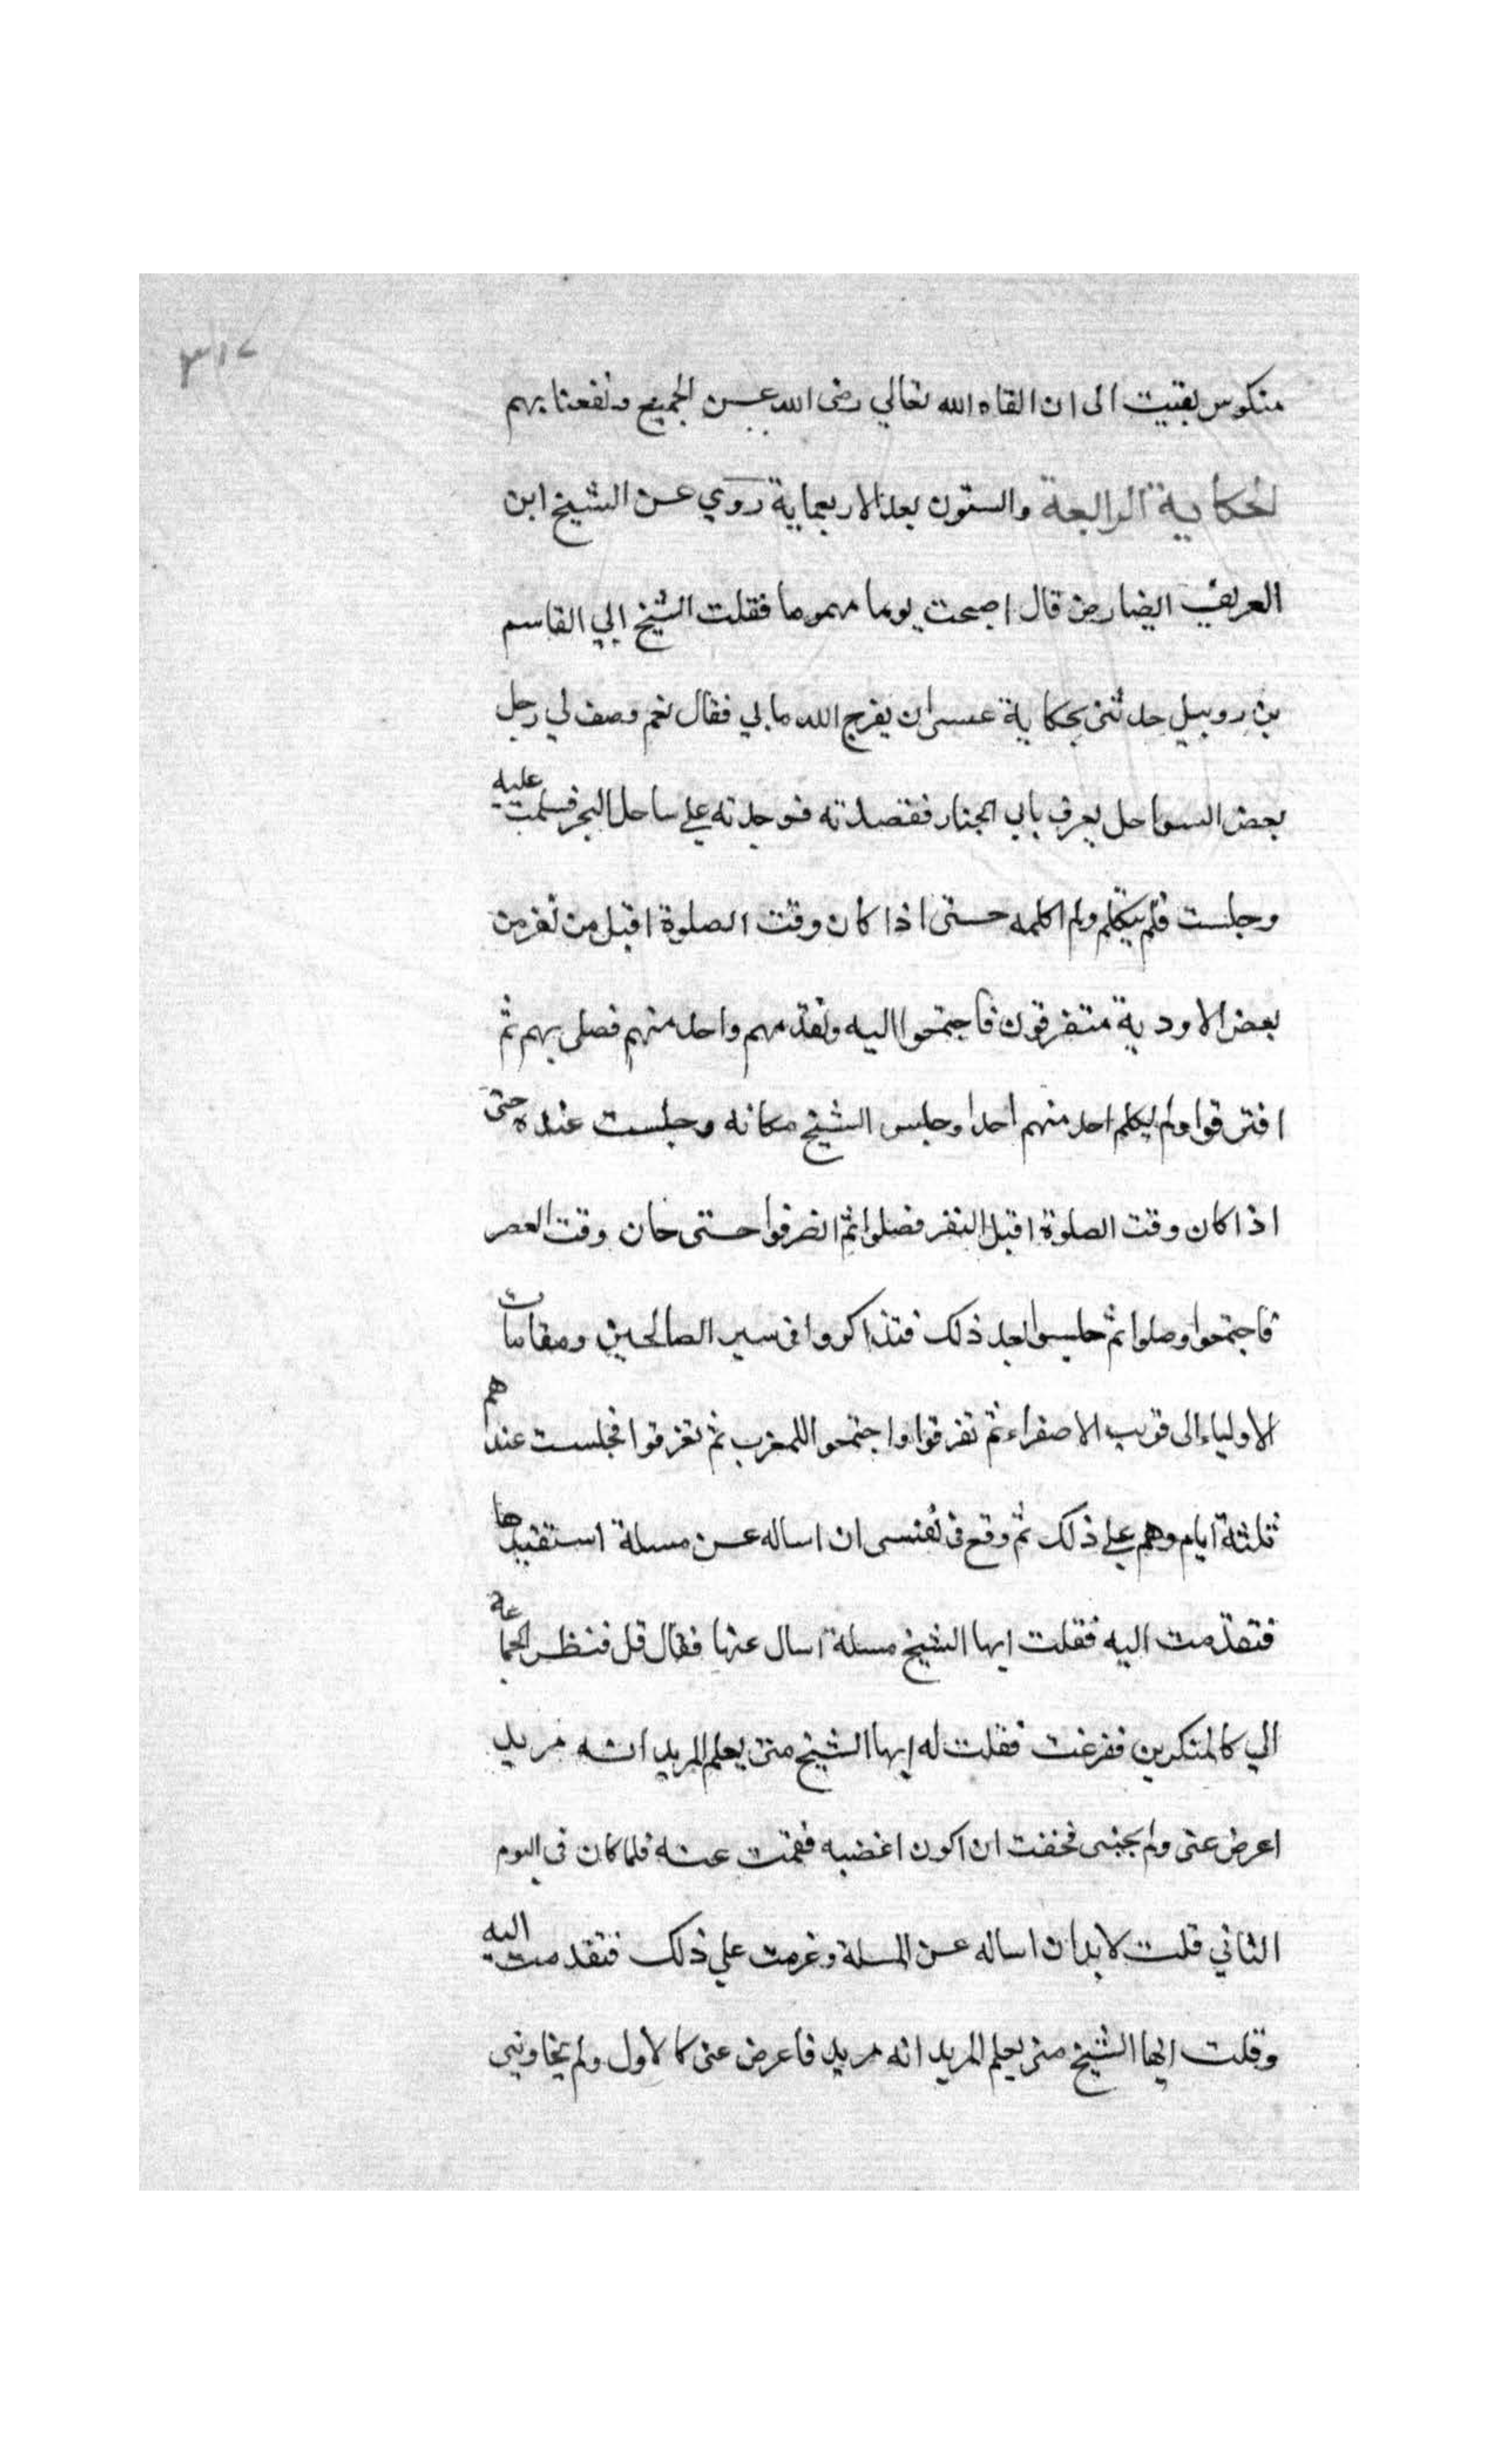 ٣١٢
منكوس بقيت الى ان القاه الله تعالي رضى الله عن الجميع ونفعنا بهم
الحكاية الرابعة والستون بعد الاربعماية روي عن الشيخ ابن
العريف ايضا رض قال اصبحت يوما مهموما فقلت الشيخ ابي القاسم
بن روبيل حدثنى بحكاية عسى ان يفرج الله ما بي فقال نعم وصف لي رجل
بعض السواحل يعرف بابي الخيار فقصدته فوجدته علي ساحل البحر فسلمت عليه
وجلست فلم يتكلم ولم اكلمه حتى اذا كان وقت الصلوة اقبل من نفر من
بعض الاودية متفرقون فاجتمعوا اليه وتقدمهم واحد منهم فصلى بهم ثم
افترقوا ولم يكلم احد منهم احدا وجلس الشيخ مكانه وجلست عنده حتى
اذا كان وقت الصلوة اقبل النفر فصلوا ثم انصرفوا حتى حان وقت العصر
فاجتمعوا وصلوا ثم جلسوا بعد ذلك فتذاكروا فى سير الصالحين ومقامات
الاولياء الى قريب الاصفراء ثم تفرقوا واجتمعوا للمغرب ثم تفرقوا فجلست عندهم
ثلثة ايام وهم علي ذلك ثم وقع فى نفسى ان اساله عن مسلة استفيدها
فتقدمت اليه فقلت ايها الشيخ مسلة اسال عنها فقال قل فنظر الجماعة
الي كالمنكرين ففزعت فقلت له ايها الشيخ متى يعلم المريد انه مريد
اعرض عنى ولم يجبنى فخفت ان اكون اغضبه فقمت عنه فلما كان فى اليوم
الثاني قلت لا بد ان اساله عن المسلة وعزمت علي ذلك فتقدمت اليه
وقلت ايها الشيخ متى يعلم المريد انه مريد فاعرض عنى كالاول ولم يجاوبني